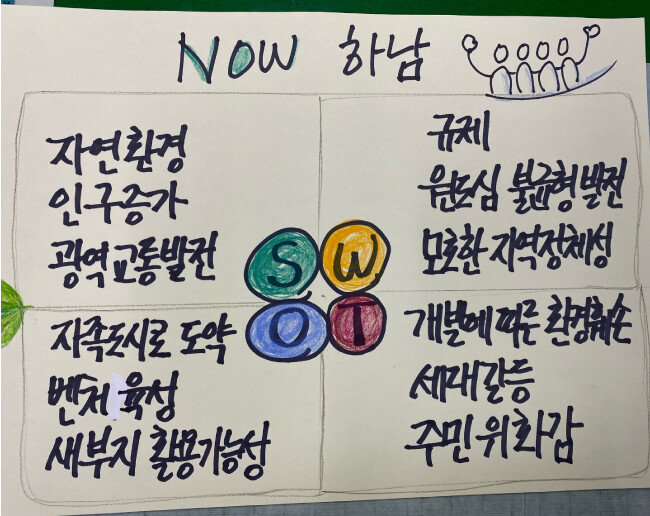 NOW 하남
자연환경
인구증가
광역교통발전
S
규제
원도심 불균형발전
모호한 지역정체성
W
자족도시로 도약
벤처 육성
새부지 활용가능성
O
개발에 따른 환경훼손
세대갈등
주민 위화감
T